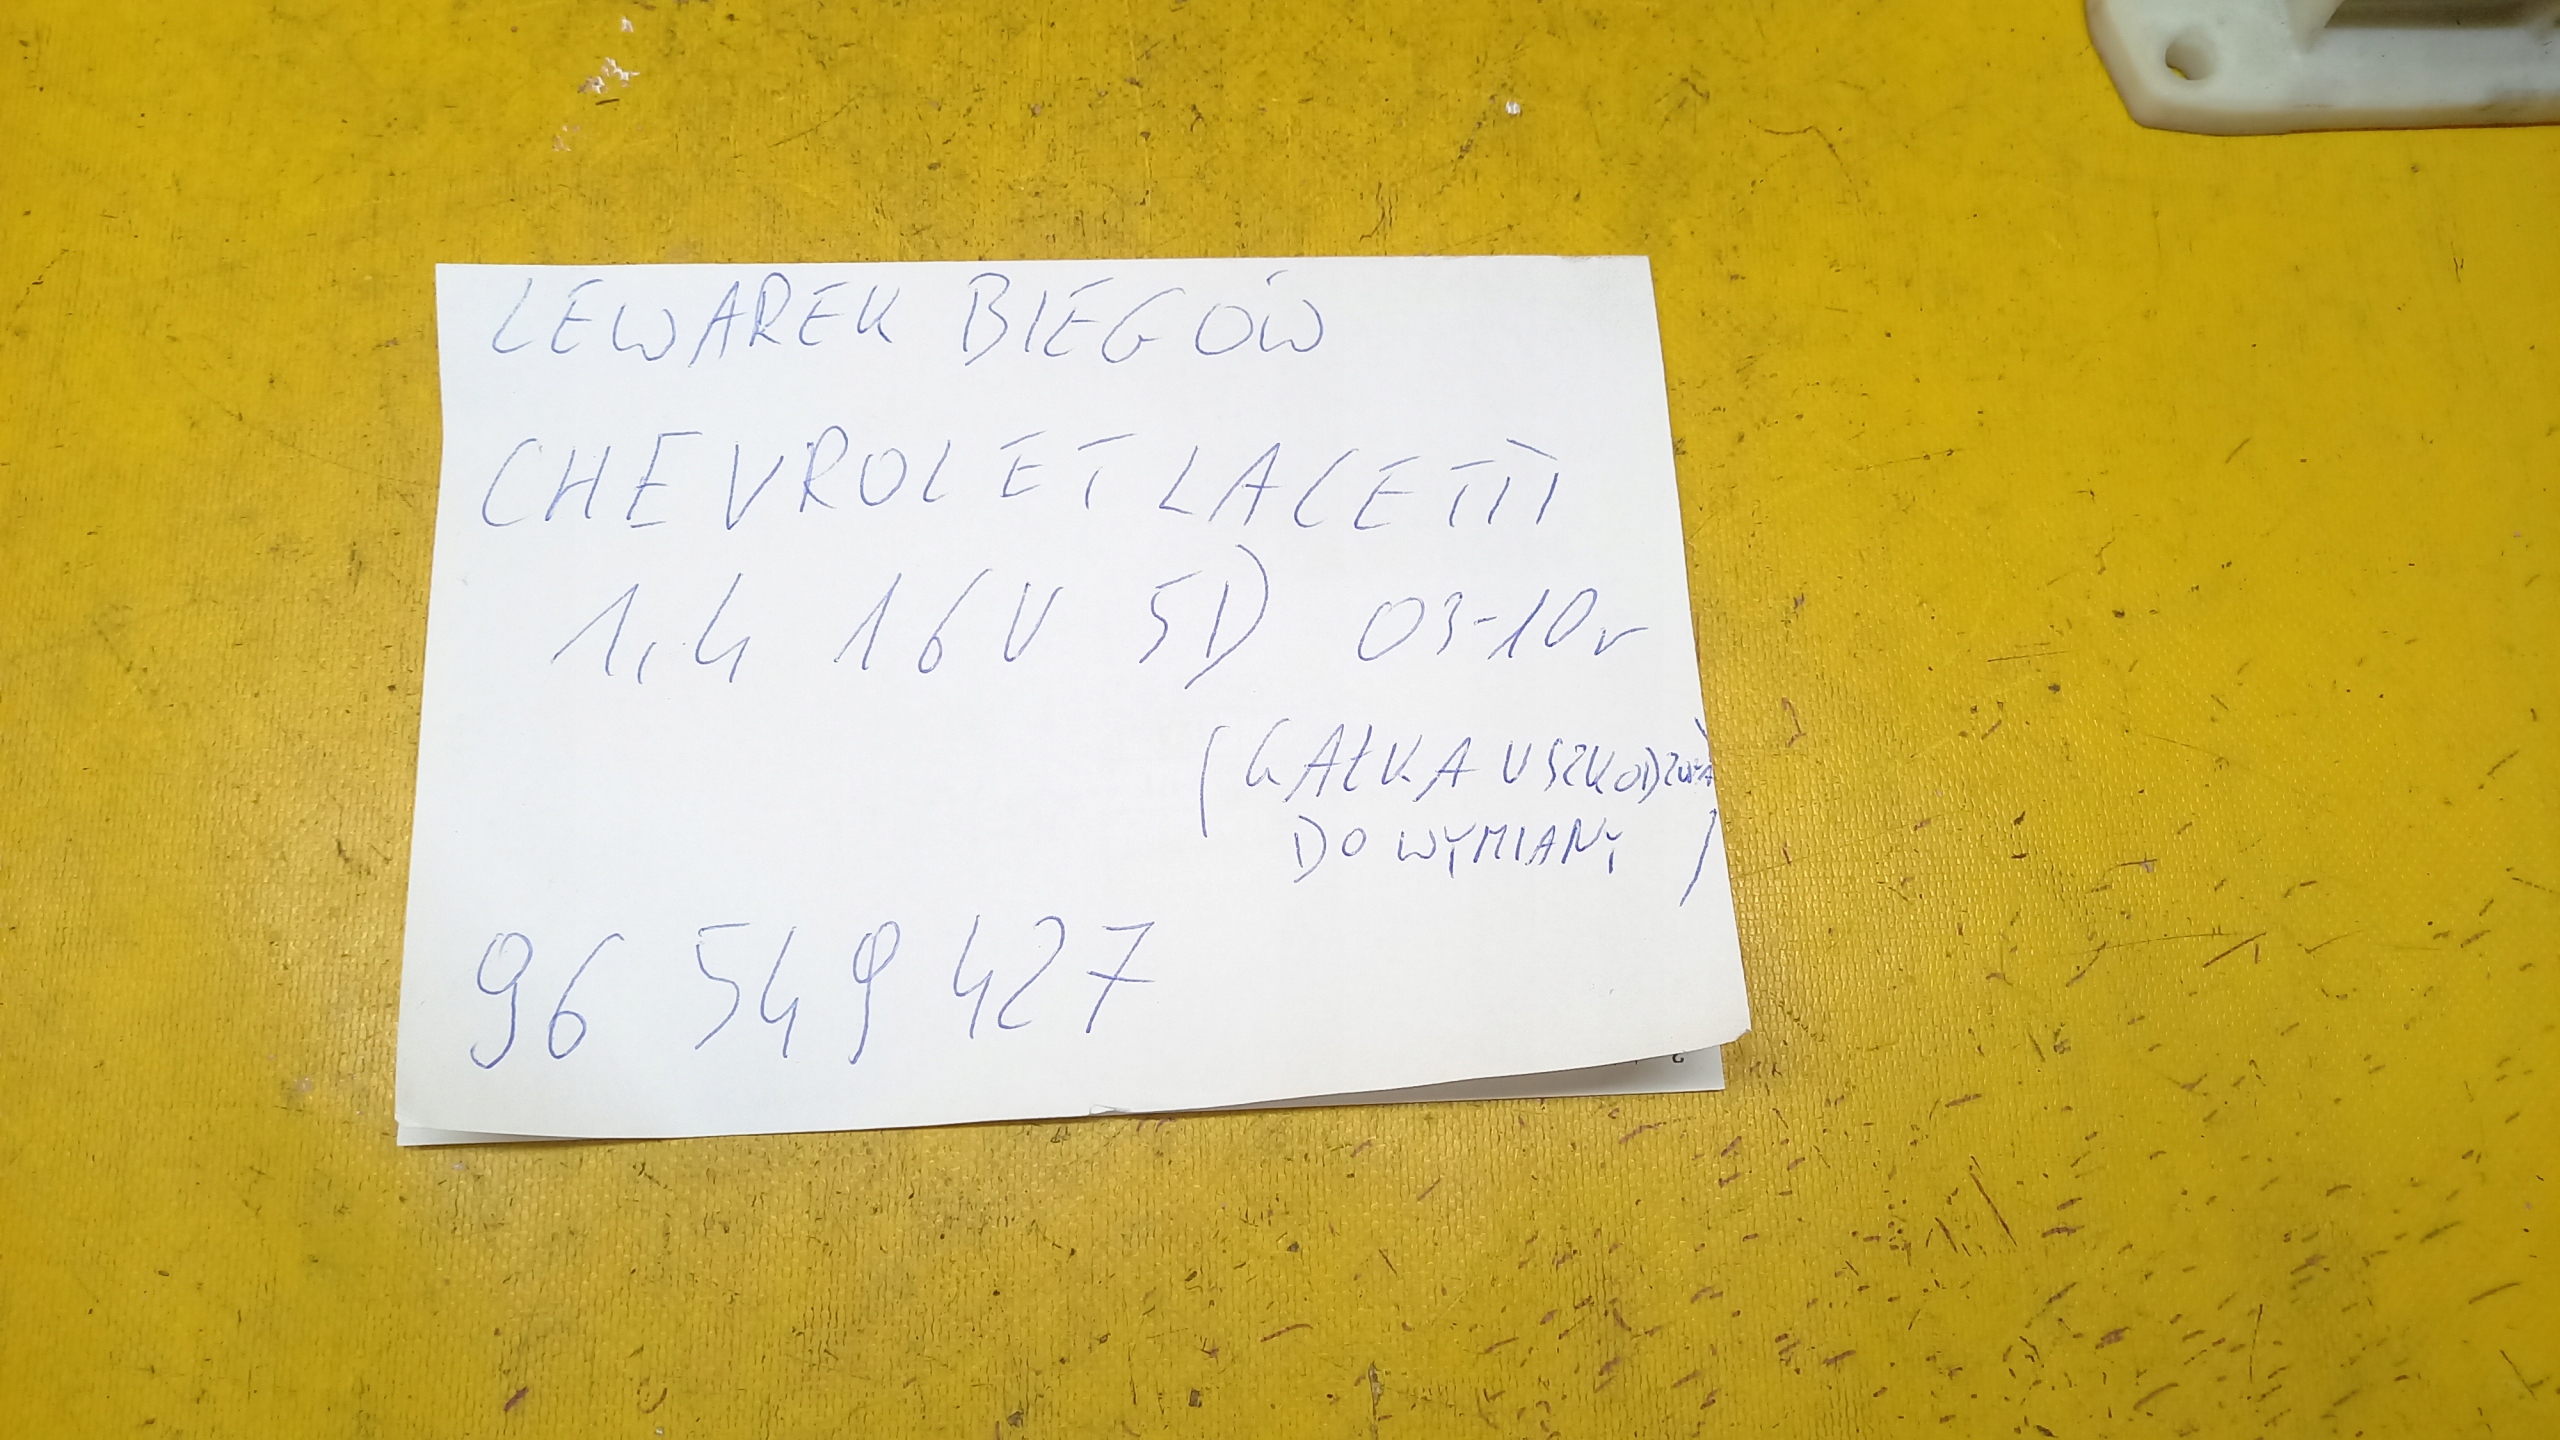 LEWAREK BIEGÓW
CHEVROLET LACETTI
1,4 16V 5D 03-10r
(GAŁKA USZKODZONA
DO WYMIANY)
96 549 427